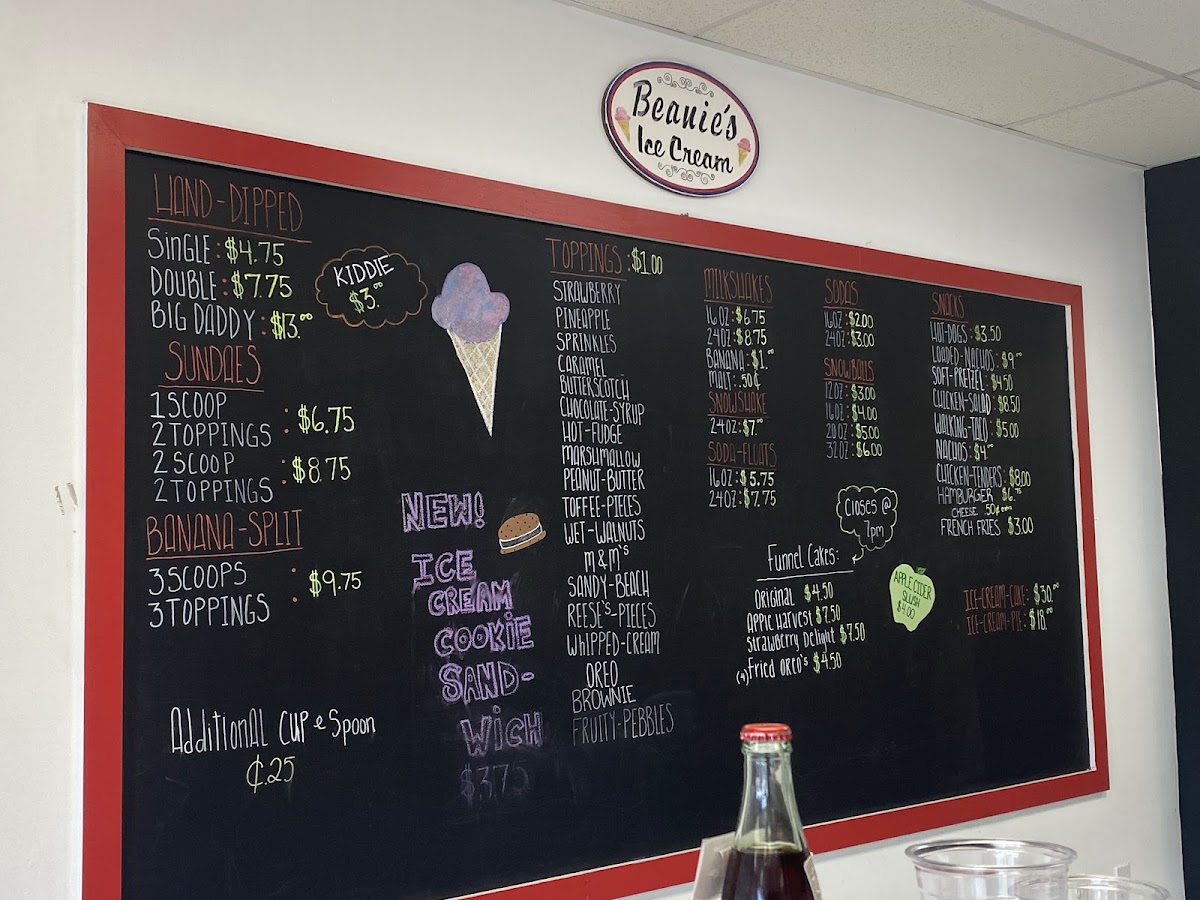 Beanie's
Ice Cream
HAND-DIPPED
SINGLE: $4.75
DOUBLE: $7.75
BIG DADDY: $13.00
KIDDIE
$3.00
SUNDAES
1 SCOOP
2 TOPPINGS : $6.75
2 SCOOP
2 TOPPINGS : $8.75
BANANA-SPLIT
3 SCOOPS
3 TOPPINGS : $9.75
AdditionAl CUP & Spoon
¢.25
NEW!
ICE
CREAM
COOKIE
SAND-
WICH
$3.75
TOPPINGS: $1.00
STRAWBERRY
PINEAPPLE
SPRINKLES
CARAMEL
BUTTERSCOTCH
CHOCOLATE-SYRUP
HOT-FUDGE
MARSHMALLOW
PEANUT-BUTTER
TOFFEE-PIECES
WET-WALNUTS
M&M'S
SANDY-BEACH
REESE'S-PIECES
WHIPPED-CREAM
OREO
BROWNIE
FRUITY-PEBBLES
MILKSHAKES
16OZ: $6.75
24OZ: $8.75
BANANA: $1.00
MALT: .50¢
SNOWSHAKE
24OZ: $7.00
SODA-FLOATS
16OZ: $5.75
24OZ: $7.75
SODAS
16OZ: $2.00
24OZ: $3.00
SNOWBALLS
12OZ: $3.00
16OZ: $4.00
20OZ: $5.00
32OZ: $6.00
Closes @
7pm
Funnel Cakes:
Original $4.50
Apple Harvest $7.50
Strawberry Delight $7.50
(4) Fried Oreo's $4.50
APPLE CIDER
SLUSH
$4.00
SNACKS
HOT-DOGS: $3.50
LOADED-NACHOS: $9.00
SOFT-PRETZEL: $4.50
CHICKEN-SALAD: $8.50
WALKING-TACO: $5.00
NACHOS: $4.00
CHICKEN-TENDERS: $8.00
HAMBURGER $6.75
CHEESE .50¢ extra
FRENCH FRIES $3.00
ICE-CREAM-CAKE: $30.00
ICE-CREAM-PIE: $18.00